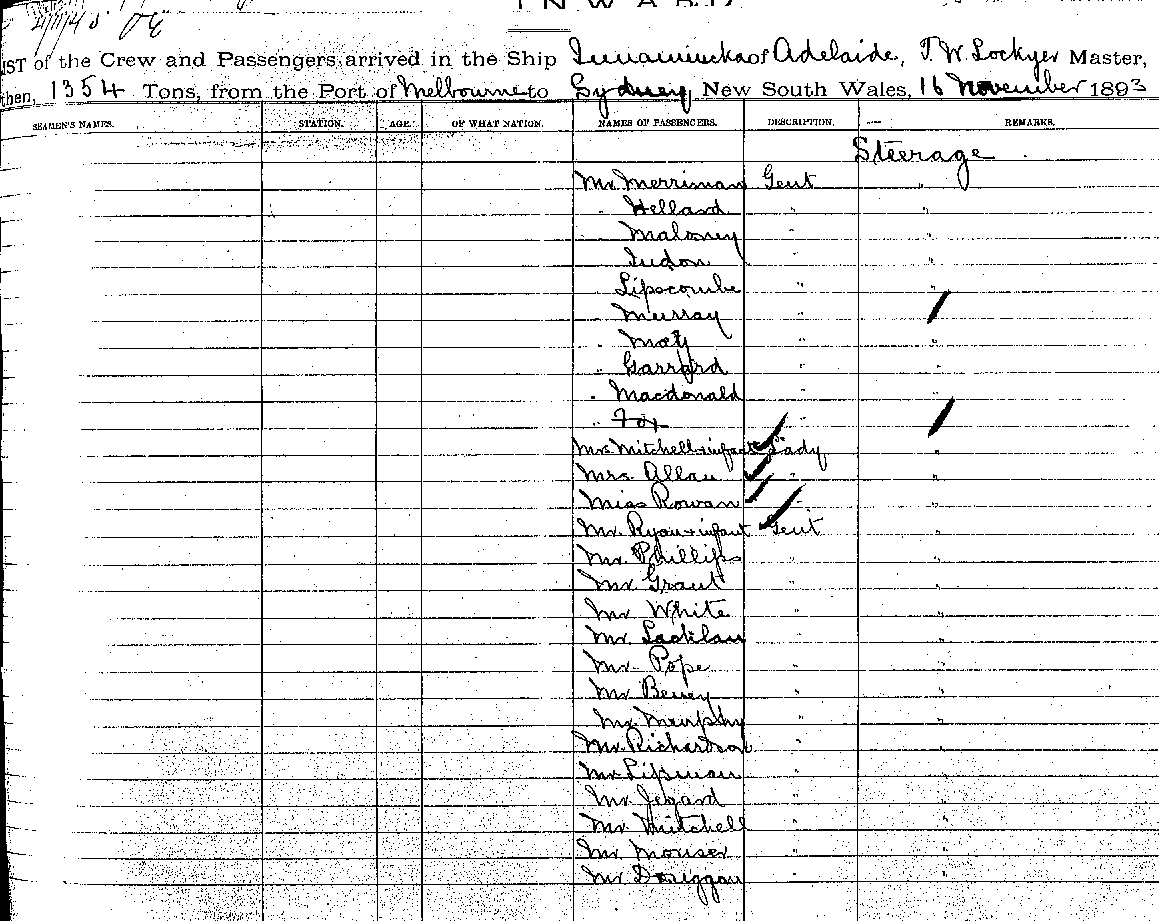 INWARD
LIST of the Crew and Passengers, arrived in the Ship Innamincka of Adelaide, T. W. Lockyer Master,
then, 1354 Tons, from the Port of Melbourne to Sydney, New South Wales, 16 November 1893
SEAMEN'S NAMES. STATION. AGE. OF WHAT NATION. NAMES OF PASSENGERS. DESCRIPTION. REMARKS.
Steerage
Mr. Merriman Gent "
" Hellard " "
Maloney " "
" "
Lipscombe " "
Murray "
" " "
" Garrard " "
" Macdonald " "
" Fox "
Mrs. Mitchell + infant Lady "
Mrs. Allan " "
Miss Rowan " "
Mr. Ryan + infant Gent "
Mr. Phillips " "
Mr. Grant " "
Mr. White " "
Mr. " "
Mr. Pope " "
Mr. " "
Mr. Murphy " "
Mr. Richardson " "
Mr. Lipman " "
Mr. " "
Mr. Mitchell " "
Mr. Mouser " "
Mr. " "